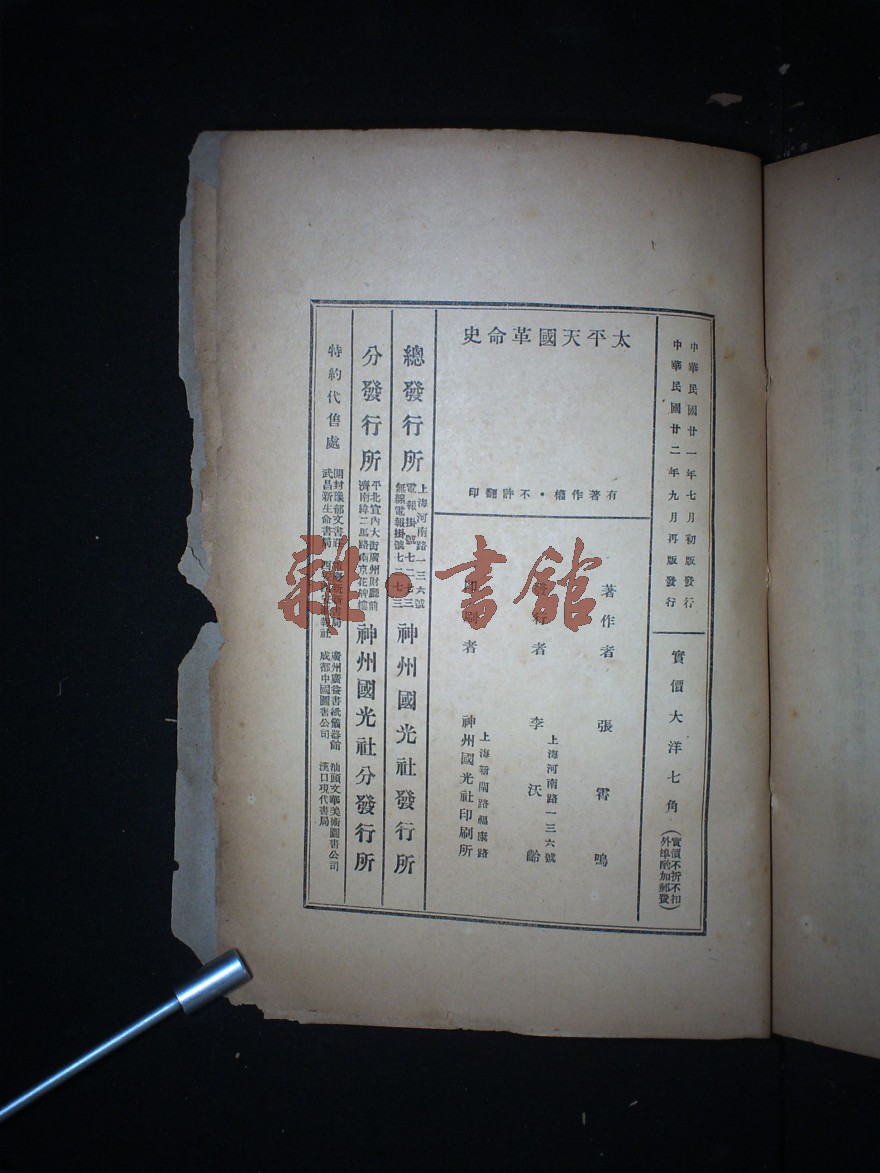 中華民國廿一年七月初版發行
中華民國廿二年九月再版發行
實價大洋七角
(實價不折不扣
外埠酌加郵費)
太平天國革命史
有著作權·不許翻印
著作者 張霄鳴
上海河南路一三六號
發行者 李沃齡
上海新閘路福康路
印刷者 神州國光社印刷所
總發行所
上海河南路一三六號
電報掛號七二七三
無線電報掛號七二七三
神州國光社發行所
分發行所
平北宣內大街廣州財廳前
濟南緯二馬路南京花牌樓
神州國光社分發行所
特約代售處
開封豫郁文書莊
武昌新生命書局
廣州廣益書紙儀器館
成都中國圖書公司
汕頭文華美術圖書公司
漢口現代書局
雜·書館